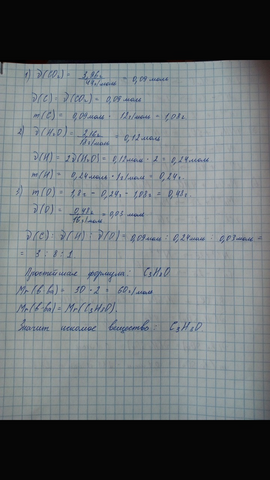 1) ν(CO₂) = 3,96г / 44г/моль = 0,09 моль
ν(C) = ν(CO₂) = 0,09 моль
m(C) = 0,09моль · 12г/моль = 1,08г.
2) ν(H₂O) = 2,16г / 18г/моль = 0,12 моль
ν(H) = 2ν(H₂O) = 0,12моль · 2 = 0,24моль
m(H) = 0,24моль · 1г/моль = 0,24г.
3) m(O) = 1,8г - 0,24г - 1,08г = 0,48г.
ν(O) = 0,48г / 16г/моль = 0,03 моль
ν(C) : ν(H) : ν(O) = 0,09моль : 0,24моль : 0,03моль =
= 3 : 8 : 1
Простейшая формула: C₃H₈O
Mr(в-ва) = 30 · 2 = 60г/моль
Mr(в-ва) = Mr(C₃H₈O).
Значит искомое вещество: C₃H₈O